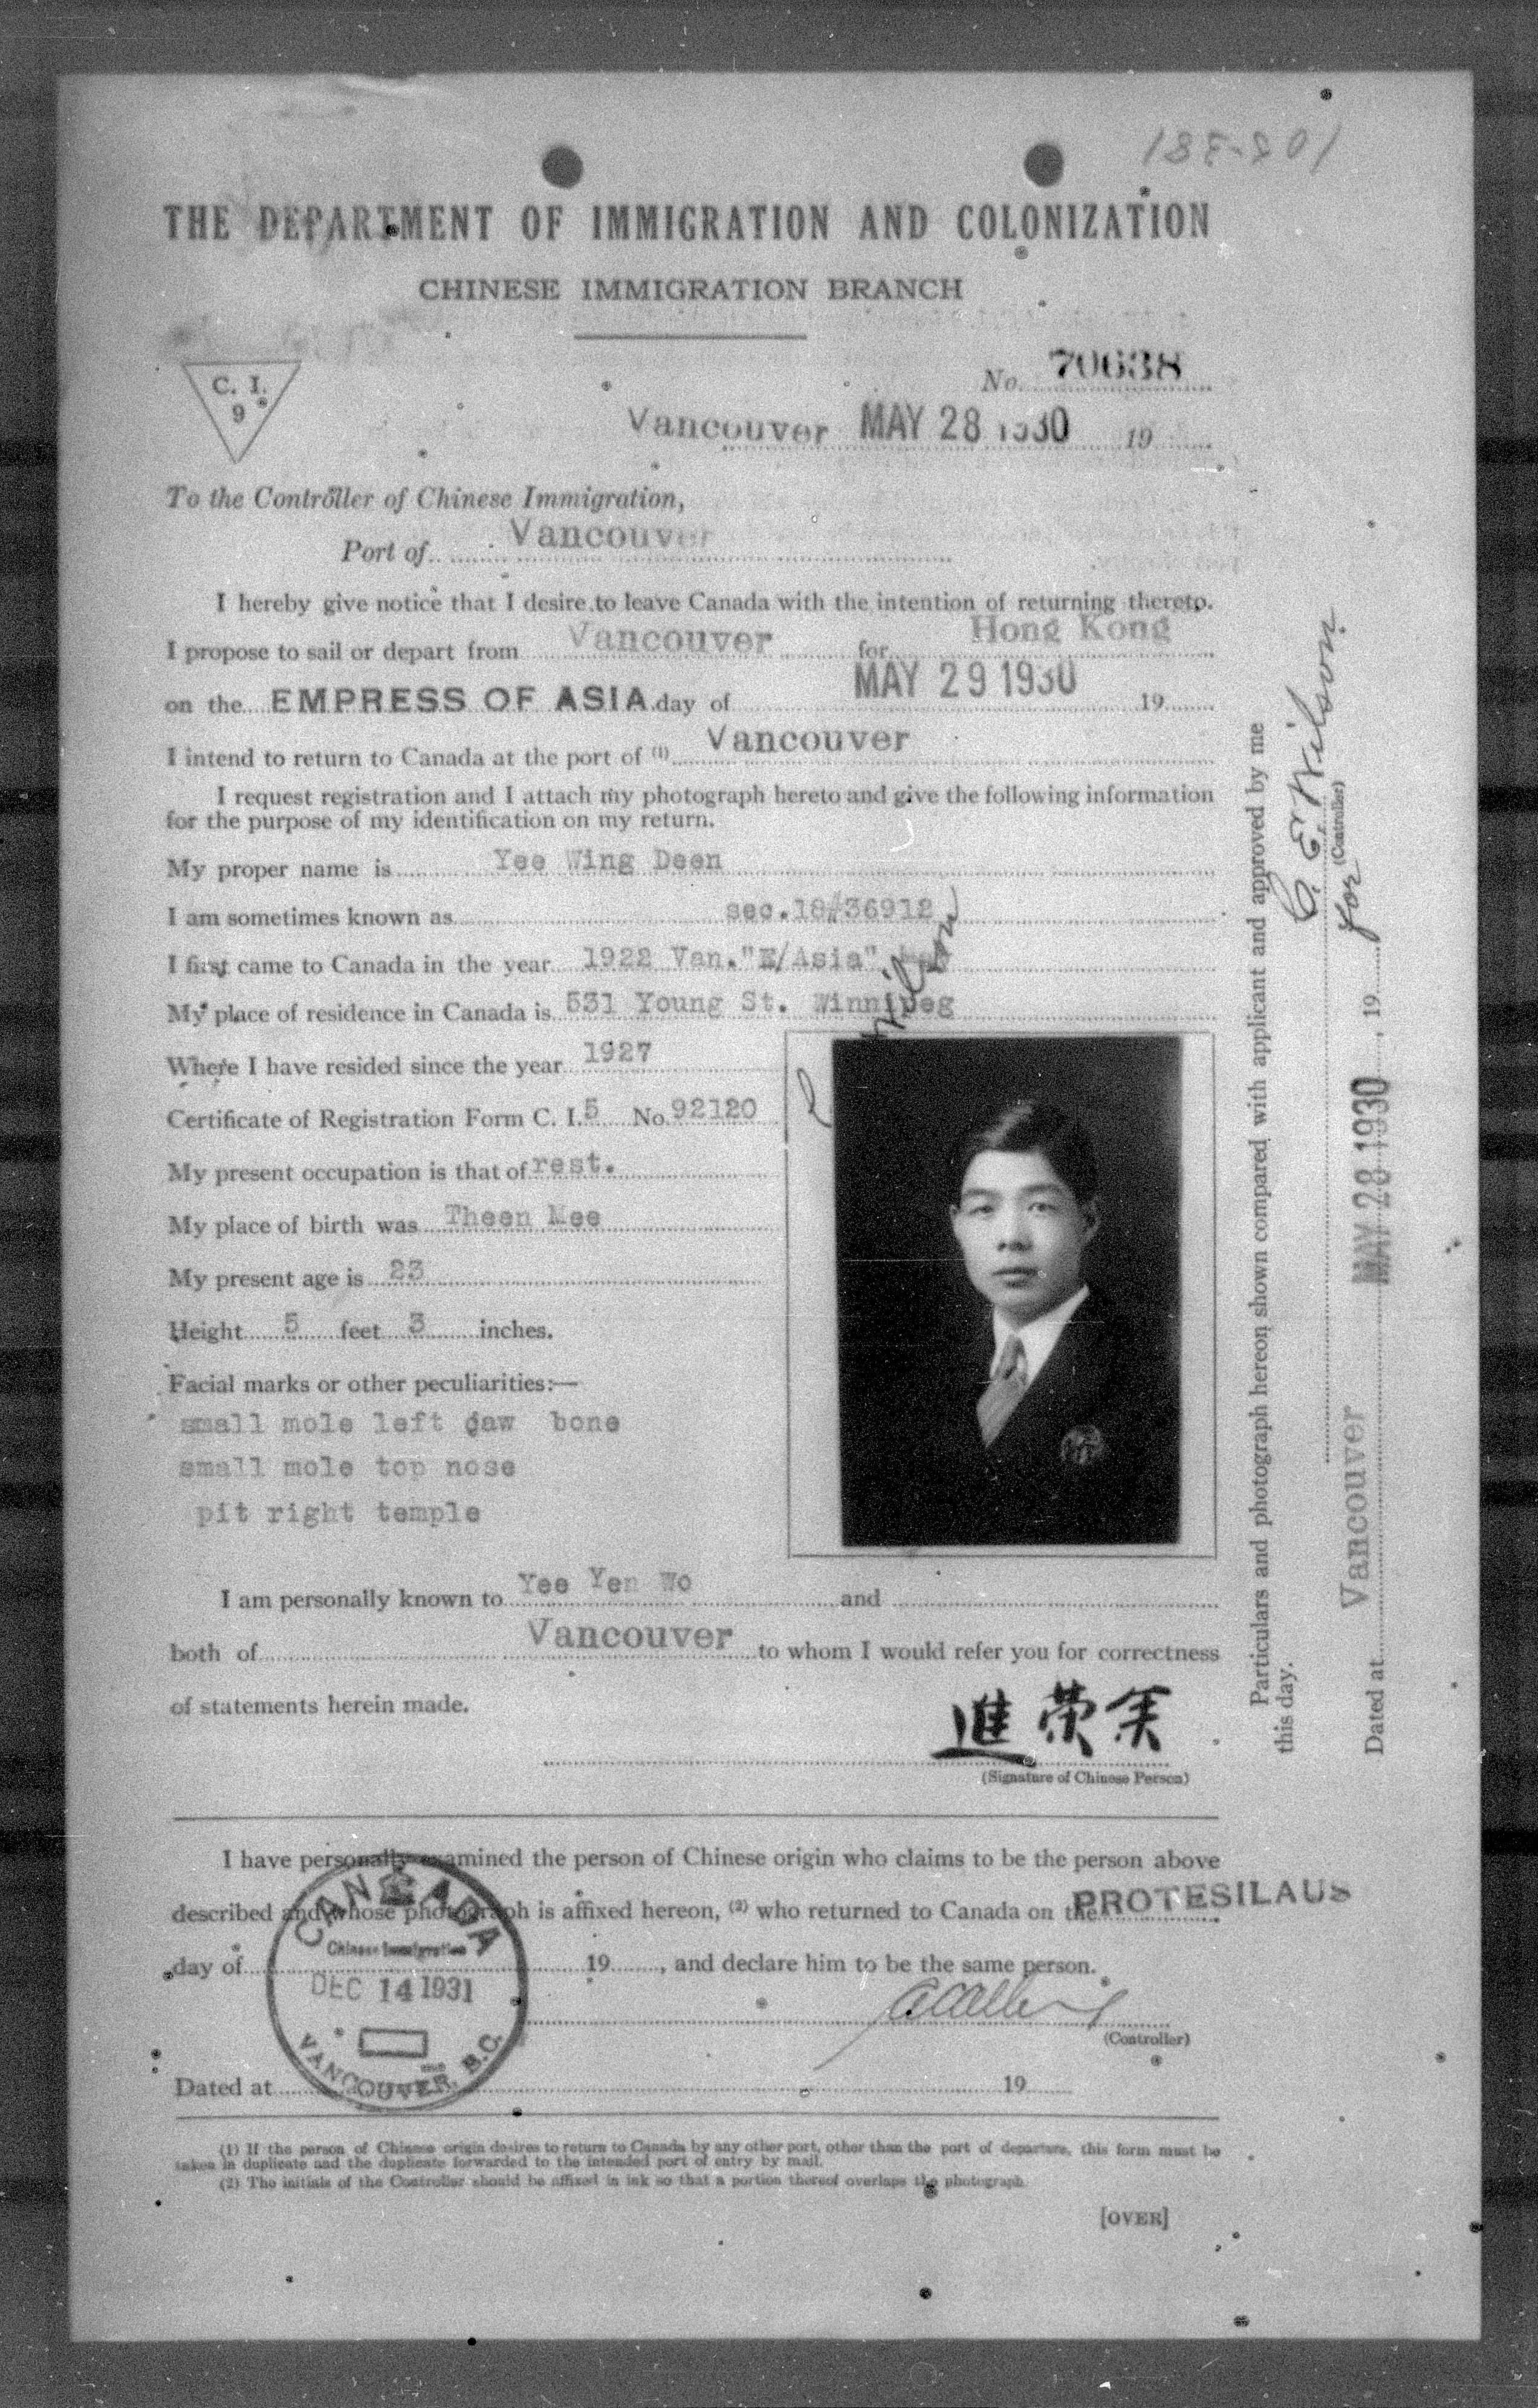 THE DEPARTMENT OF IMMIGRATION AND COLONIZATION
CHINESE IMMIGRATION BRANCH
C. I.
9
No. 70638
Vancouver MAY 28 1930 19
To the Controller of Chinese Immigration,
Port of Vancouver
I hereby give notice that I desire to leave Canada with the intention of returning thereto.
I propose to sail or depart from Vancouver for Hong Kong
on the EMPRESS OF ASIA day of MAY 29 1930 19
I intend to return to Canada at the port of (1) Vancouver
I request registration and I attach my photograph hereto and give the following information
for the purpose of my identification on my return.
My proper name is Yee Wing Deen
I am sometimes known as sec.18#36912
I first came to Canada in the year 1922 Van."E/Asia"
My place of residence in Canada is 531 Young St. Winnipeg
Where I have resided since the year 1927
Certificate of Registration Form C. I. 5 No. 92120
My present occupation is that of rest.
My place of birth was Theen Mee
My present age is 23
Height 5 feet 3 inches.
Facial marks or other peculiarities:—
small mole left jaw bone
small mole top nose
pit right temple
I am personally known to Yee Yen Wo and
both of Vancouver to whom I would refer you for correctness
of statements herein made.
進荣余
(Signature of Chinese Person)
I have personally examined the person of Chinese origin who claims to be the person above
described and whose photograph is affixed hereon, (2) who returned to Canada on the PROTESILAUS
day of 19, and declare him to be the same person.
(Controller)
Dated at 19
CANADA
Chinese Immigration
DEC 14 1931
VANCOUVER, B.C.
(1) If the person of Chinese origin desires to return to Canada by any other port, other than the port of departure, this form must be
taken in duplicate and the duplicate forwarded to the intended port of entry by mail.
(2) The initials of the Controller should be affixed in ink so that a portion thereof overlaps the photograph.
[OVER]
Particulars and photograph hereon shown compared with applicant and approved by me
this day.
C. E. Wilson
for (Controller)
Dated at Vancouver MAY 28 1930, 19